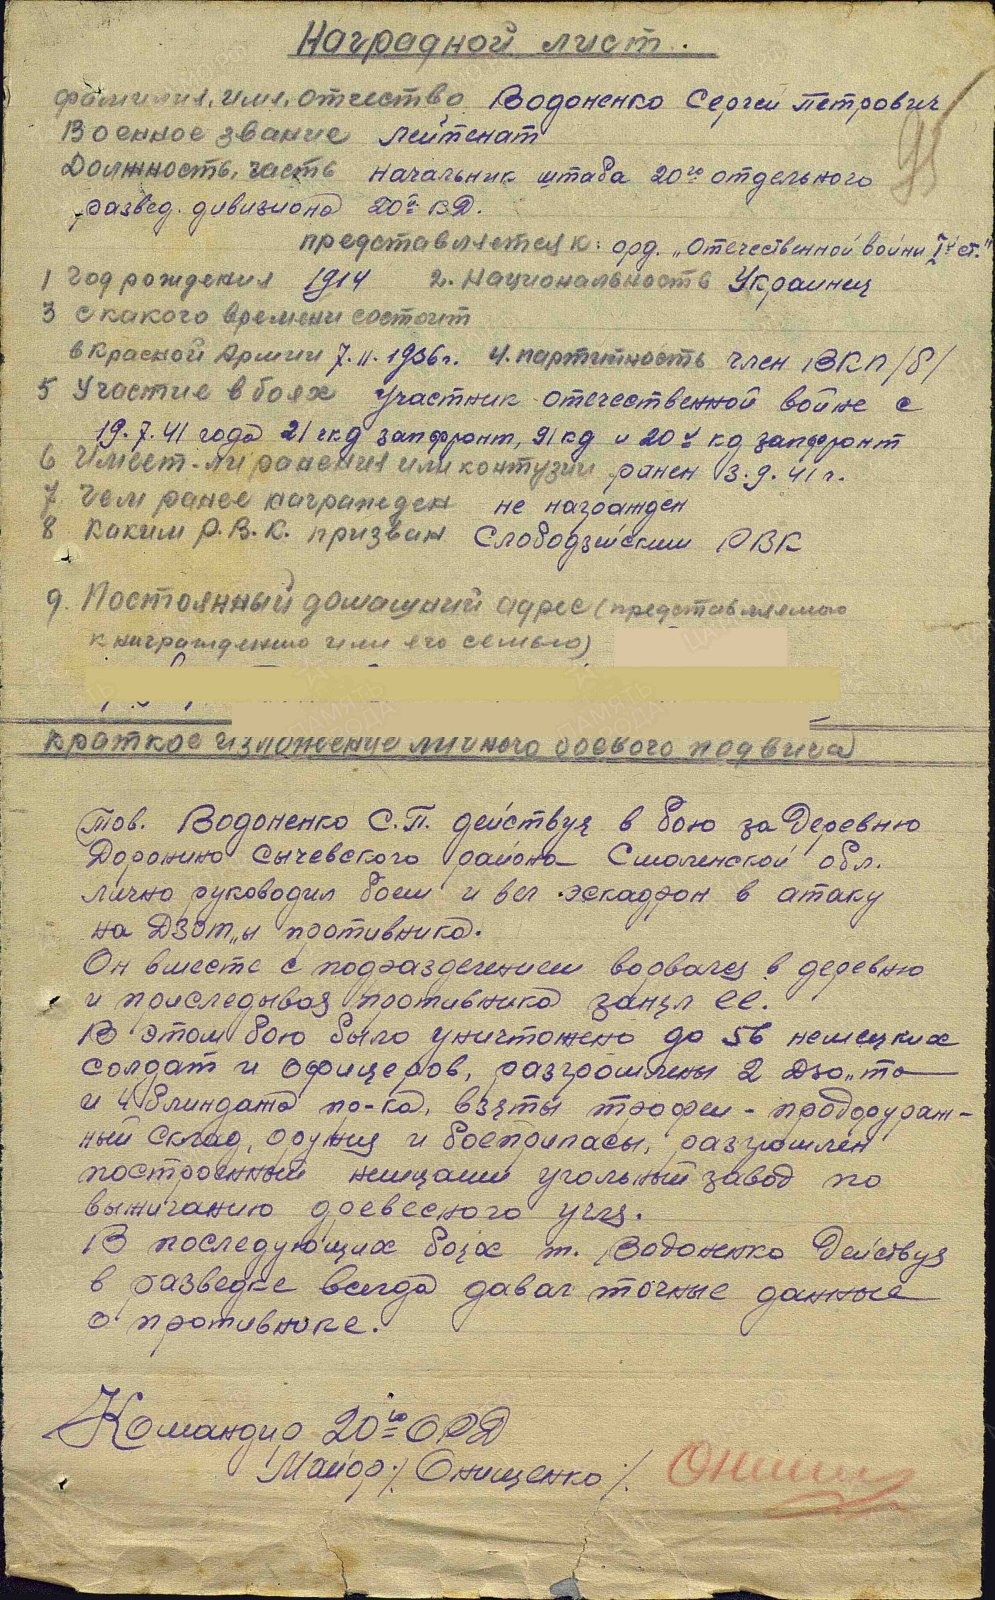 Наградной лист.
95
фамилия, имя, отчество Водоненко Сергей Петрович
Военное звание лейтенат
Должность, часть начальник штаба 20го отдельного
развед. дивизиона 20й КД.
представляется к: орд. „Отечественной войни I й ст."
1 Год рождения 1914 2. Национальность Украинец
3 с какого времени состоит
в Красной Армии 7.II.1936г. 4. партитность член ВКП/б/
5 Участие в боях Участник отечественной войне с
19.7.41 года 21 гкд запфронт, 91 кд и 20й кд запфронт
6 Имеет-ли ранения или контузии ранен 3.9.41г.
7 Чем ранее награжден не награжден
8 Каким Р.В.К. призван Слободзийским РВК
9. Постоянный домашний адрес (представляемого
к награждению или его семью)
Краткое изложение личного боевого подвига
Тов. Водоненко С.П. действуя в бою за деревню
Доронино Сычевского района Смоленской обл.
лично руководил боем и вел эскадрон в атаку
на ДЗот„ы противника.
Он вместе с подразделением ворвался в деревню
и приследывая противника занял ее.
В этом бою было уничтожено до 56 немецких
солдат и офицеров, разгромлены 2 дзо„та
и 4 блиндажа пр-ка, взяты трофеи - продфураж-
ный склад, оружия и боеприпасы, разгромлен
построенный немцами угольный завод по
выжиганию древесного угля.
В последующих боях т. Водоненко действуя
в разведке всегда давал точные данные
о противнике.
Командир 20го ОРД
Майор /Онищенко/.